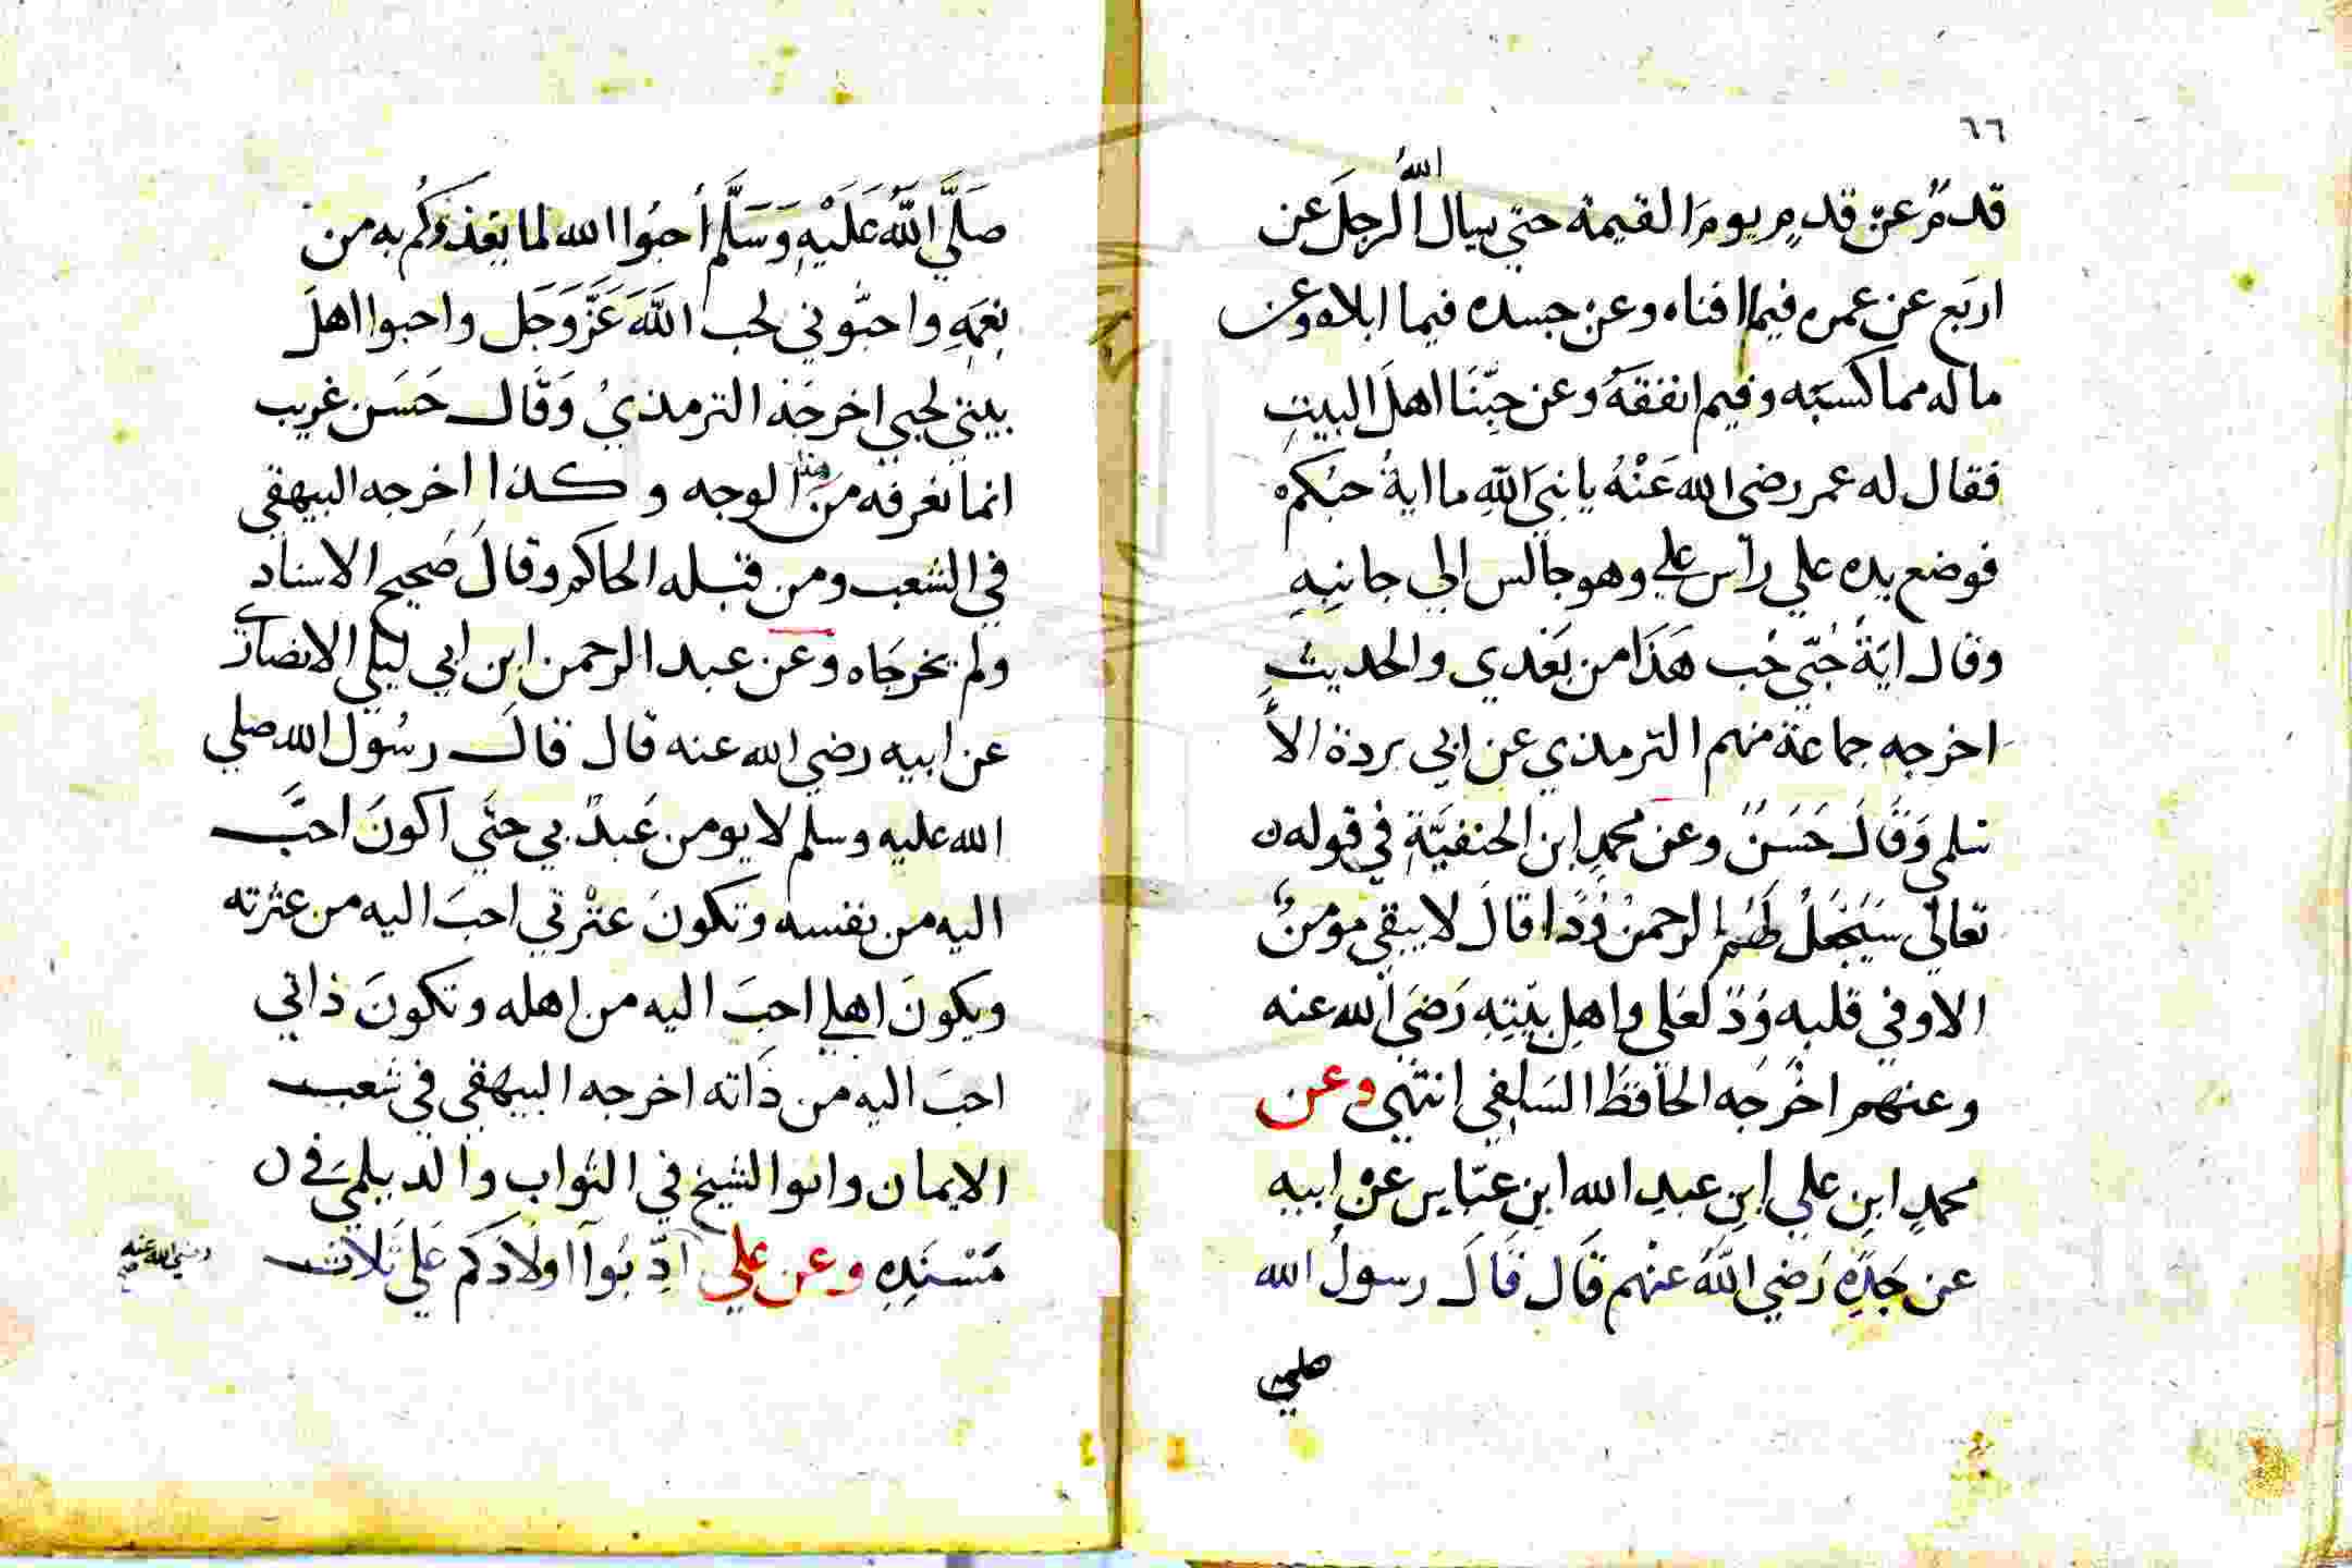 ٦٦
قدمٌ عن قدمٍ يومَ القيمة حتي يسال اللهُ الرجلَ عن
اربَع عن عمره فيما افناه وعن جسده فيما ابلاه وعن
ماله مما كسبَه وفيم انفقَهُ وعن حِبّنَا اهلَ البيتِ
فقال له عمر رضى الله عَنْهُ يا نبيَ اللهِ ما ايةُ حبُكمْ
فوضع يده علي رأس علي وهو جالس الي جانبِهِ
وقال ايَةُ حُبّي حُب هَذَا من بَعْدي والحديث
اخرجه جماعة منهم الترمذي عن ابي بردة الاَ
سلمي وَقَالَ حَسَنٌ وعن محمدِ ابن الحنفيَّةِ في قوله
تعالي سَيَجْعَلُ لَهُمُ الرحمنُ وُدًا قالَ لا يبقي مومنٌ
الا وفي قلبه وُدّ لعَلي واهلِ بيْتِه رَضيَ الله عنه
وعنهم اخْرَجَه الحَافظَ السَلِفي انتهي وعن
محمدٍ ابنِ علي ابنِ عبدِ الله ابنِ عبّاسٍ عن ابيه
عن جَدّهِ رَضي اللهُ عنْهم قَال قَالَ رسولُ الله
صلي
صَلَّي اللهُ عَلَيْهِ وَسَلَّم أحبُوا الله لما يغذوكُم به من
نِعَمِهِ واحبّوني لحب اللهَ عَزَّوَجَل واحبوا اهلَ
بيتي لحبي اخرجَهُ الترمذيُ وَقَال حَسَن غريب
انما نعرفه مِنْ هذا الوجه وكذا اخرجه البيهقي
في الشعب ومن قبله الحاكم وقالَ صَحيح الاسناد
ولم يخرجَاه وعن عبد الرحمن ابن ابي ليلي الانصاري
عن ابيه رضي الله عنه قال قالَ رسُول الله صلي
الله عليه وسلم لا يومن عَبدٌ بي حتَي اكونَ احبَّ
اليه من نفسه وتكونَ عتْرتي احبَ اليه من عثرته
ويكونَ اهلي احبَ اليه من اهله وتكونَ ذاتي
احبَ اليه من ذَاته اخرجه البيهقي في شعب
الايمان وابوا الشيخ في الثواب والديلميَ في
مَسْنَدِهِ وعن علي ادّبُوآ اولَادَكم عَلي ثَلاث
رضي الله عنه